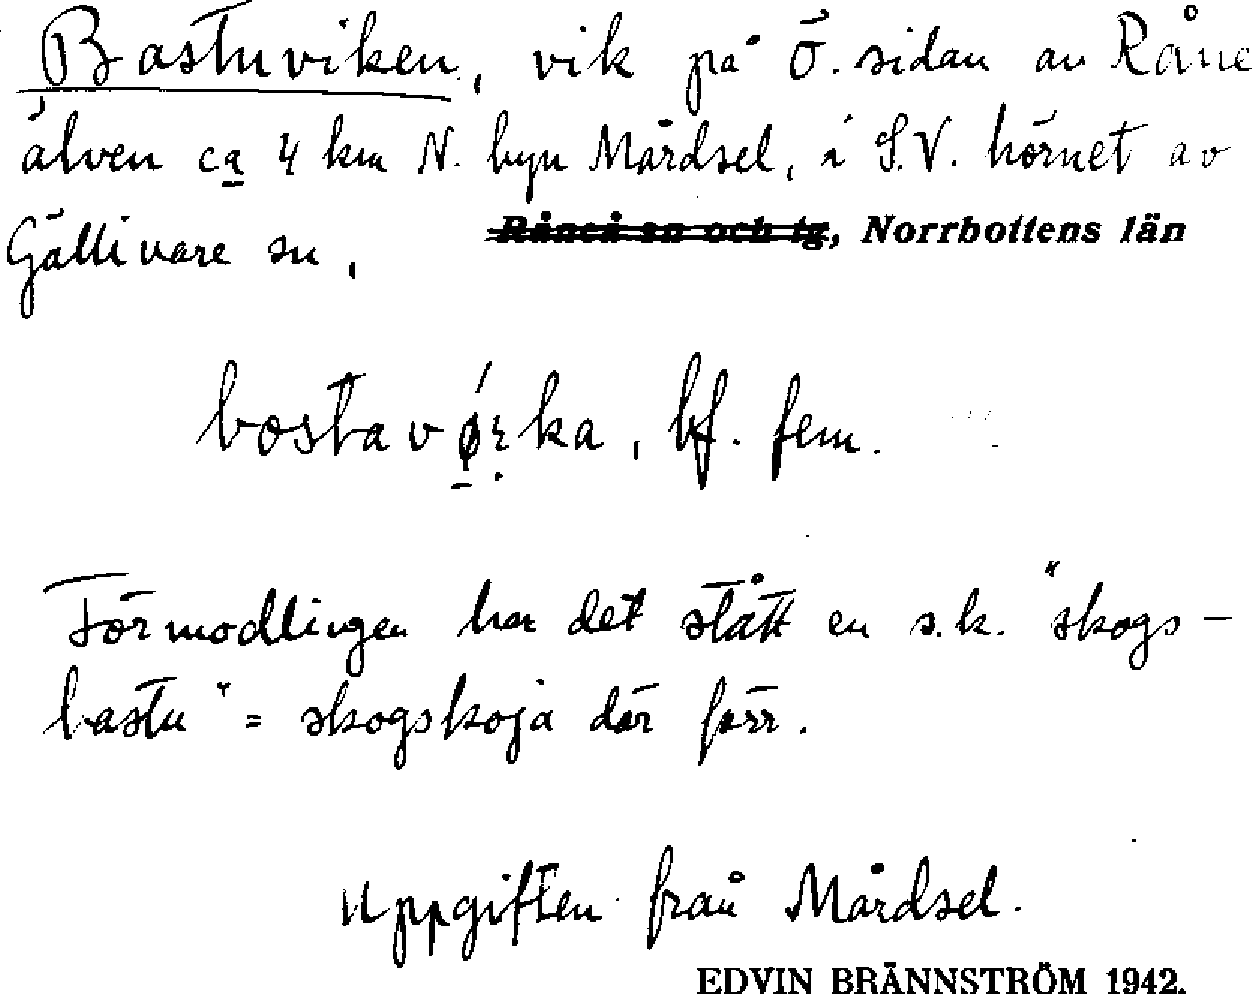 Bastuviken, vik på Ö. sidan av Råne
älven ca 4 km N. byn Mårdsel, i S.V. hörnet av
Gällivare sn, Råneå sn och tg, Norrbottens län
bf. fem.
Förmodlingen har det stått en s.k. "skogs-
bastu" = skogskoja där förr.
Uppgiften från Mårdsel.
EDVIN BRÄNNSTRÖM 1942.